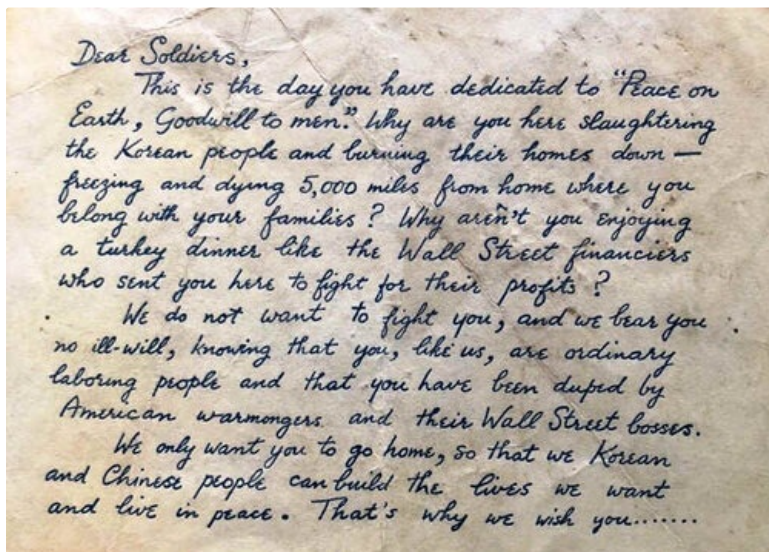 Dear Soldiers,
This is the day you have dedicated to "Peace on
Earth, Goodwill to men." Why are you here slaughtering
the Korean people and burning their homes down —
freezing and dying 5,000 miles from home where you
belong with your families? Why aren't you enjoying
a turkey dinner like the Wall Street financiers
who sent you here to fight for their profits?
We do not want to fight you, and we bear you
no ill-will, knowing that you, like us, are ordinary
laboring people and that you have been duped by
American warmongers and their Wall Street bosses.
We only want you to go home, so that we Korean
and Chinese people can build the lives we want
and live in peace. That's why we wish you.......